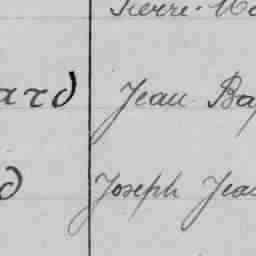 Pierre-
ard Jean Bap
d Joseph Jea